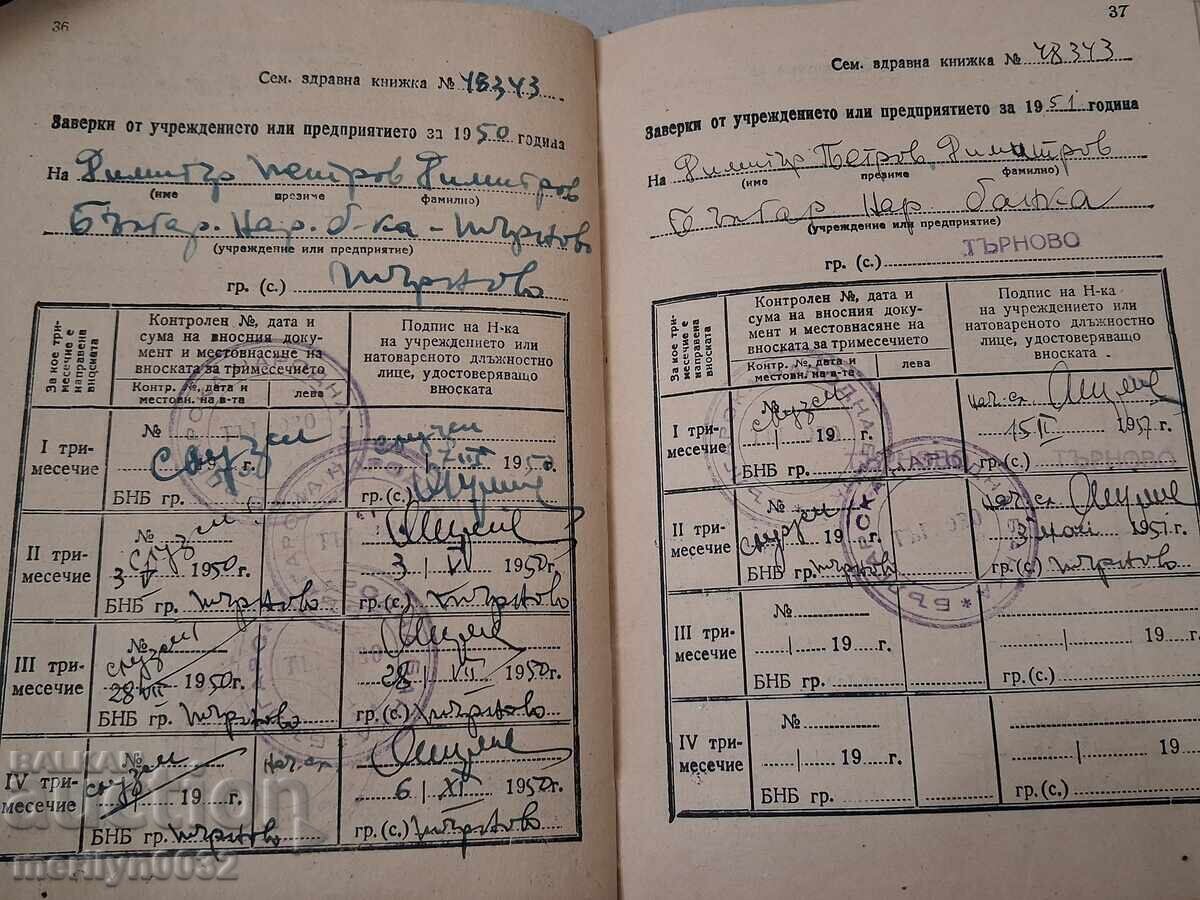 36
Сем. здравна книжка № 48343
Заверки от учреждението или предприятието за 1950 година
На Димитър Петров Димитров
(име презиме фамилно)
Българ. Нар. б-ка - Търново
(учреждение или предприятие)
гр. (с.) Търново
За кое три-
месечие е
направена
вноската
Контролен №, дата и
сума на вносния доку-
мент и местовнасяне на
вноската за тримесечието
Контр. №, дата и
местовн. на в-та
лева
Подпис на Н-ка
на учреждението или
натовареното длъжностно
лице, удостоверяващо
вноската
I три-
месечие
№
19 г.
БНБ гр.
1950
гр.(с.)
II три-
месечие
№
3 V 1950 г.
БНБ гр. Търново
3 V 1950 г.
гр. (с.) Търново
III три-
месечие
№
28 VII 1950 г.
БНБ гр. Търново
28 VII 1950 г.
гр. (с.) Търново
IV три-
месечие
№
19 г.
БНБ гр. Търново
нач. сл.
6 XI 1950 г.
гр. (с.) Търново
37
Сем. здравна книжка № 48343
Заверки от учреждението или предприятието за 1951 година
На Димитър Петров Димитров
(име презиме фамилно)
Българ Нар. банка
(учреждение или предприятие)
гр. (с.) ТЪРНОВО
За кое три-
месечие е
направена
вноската
Контролен №, дата и
сума на вносния доку-
мент и местовнасяне на
вноската за тримесечието
Контр. №, дата и
местовн. на в-та
лева
Подпис на Н-ка
на учреждението или
натовареното длъжностно
лице, удостоверяващо
вноската
I три-
месечие
№
19 г.
БНБ гр.
нач. сл.
15 II 1951 г.
ТЪРНОВО
II три-
месечие
№
19 г.
БНБ гр. Търново
нач. сл.
3 май 1951 г.
гр. (с.) Търново
III три-
месечие
№
19 г.
БНБ гр.
19 г.
гр. (с.)
IV три-
месечие
№
19 г.
БНБ гр.
19 г.
гр. (с.)
BALKAN
auction
merilyn0032